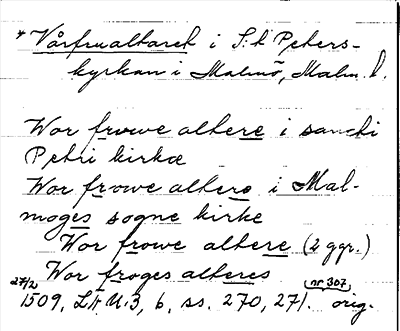 * Vårfrualtaret i S:t Peters-
kyrkan i Malmö, Malm. l.
Wor frowe altere i sancti
Petri kirkæ
Wor frowe altere i Mal-
moges sogne kirke
Wor frowe altere (2 ggr.)
Wor froges alteres
27/2 1509, LÞU:3, 6, ss. 270, 271. (nr 307) orig.